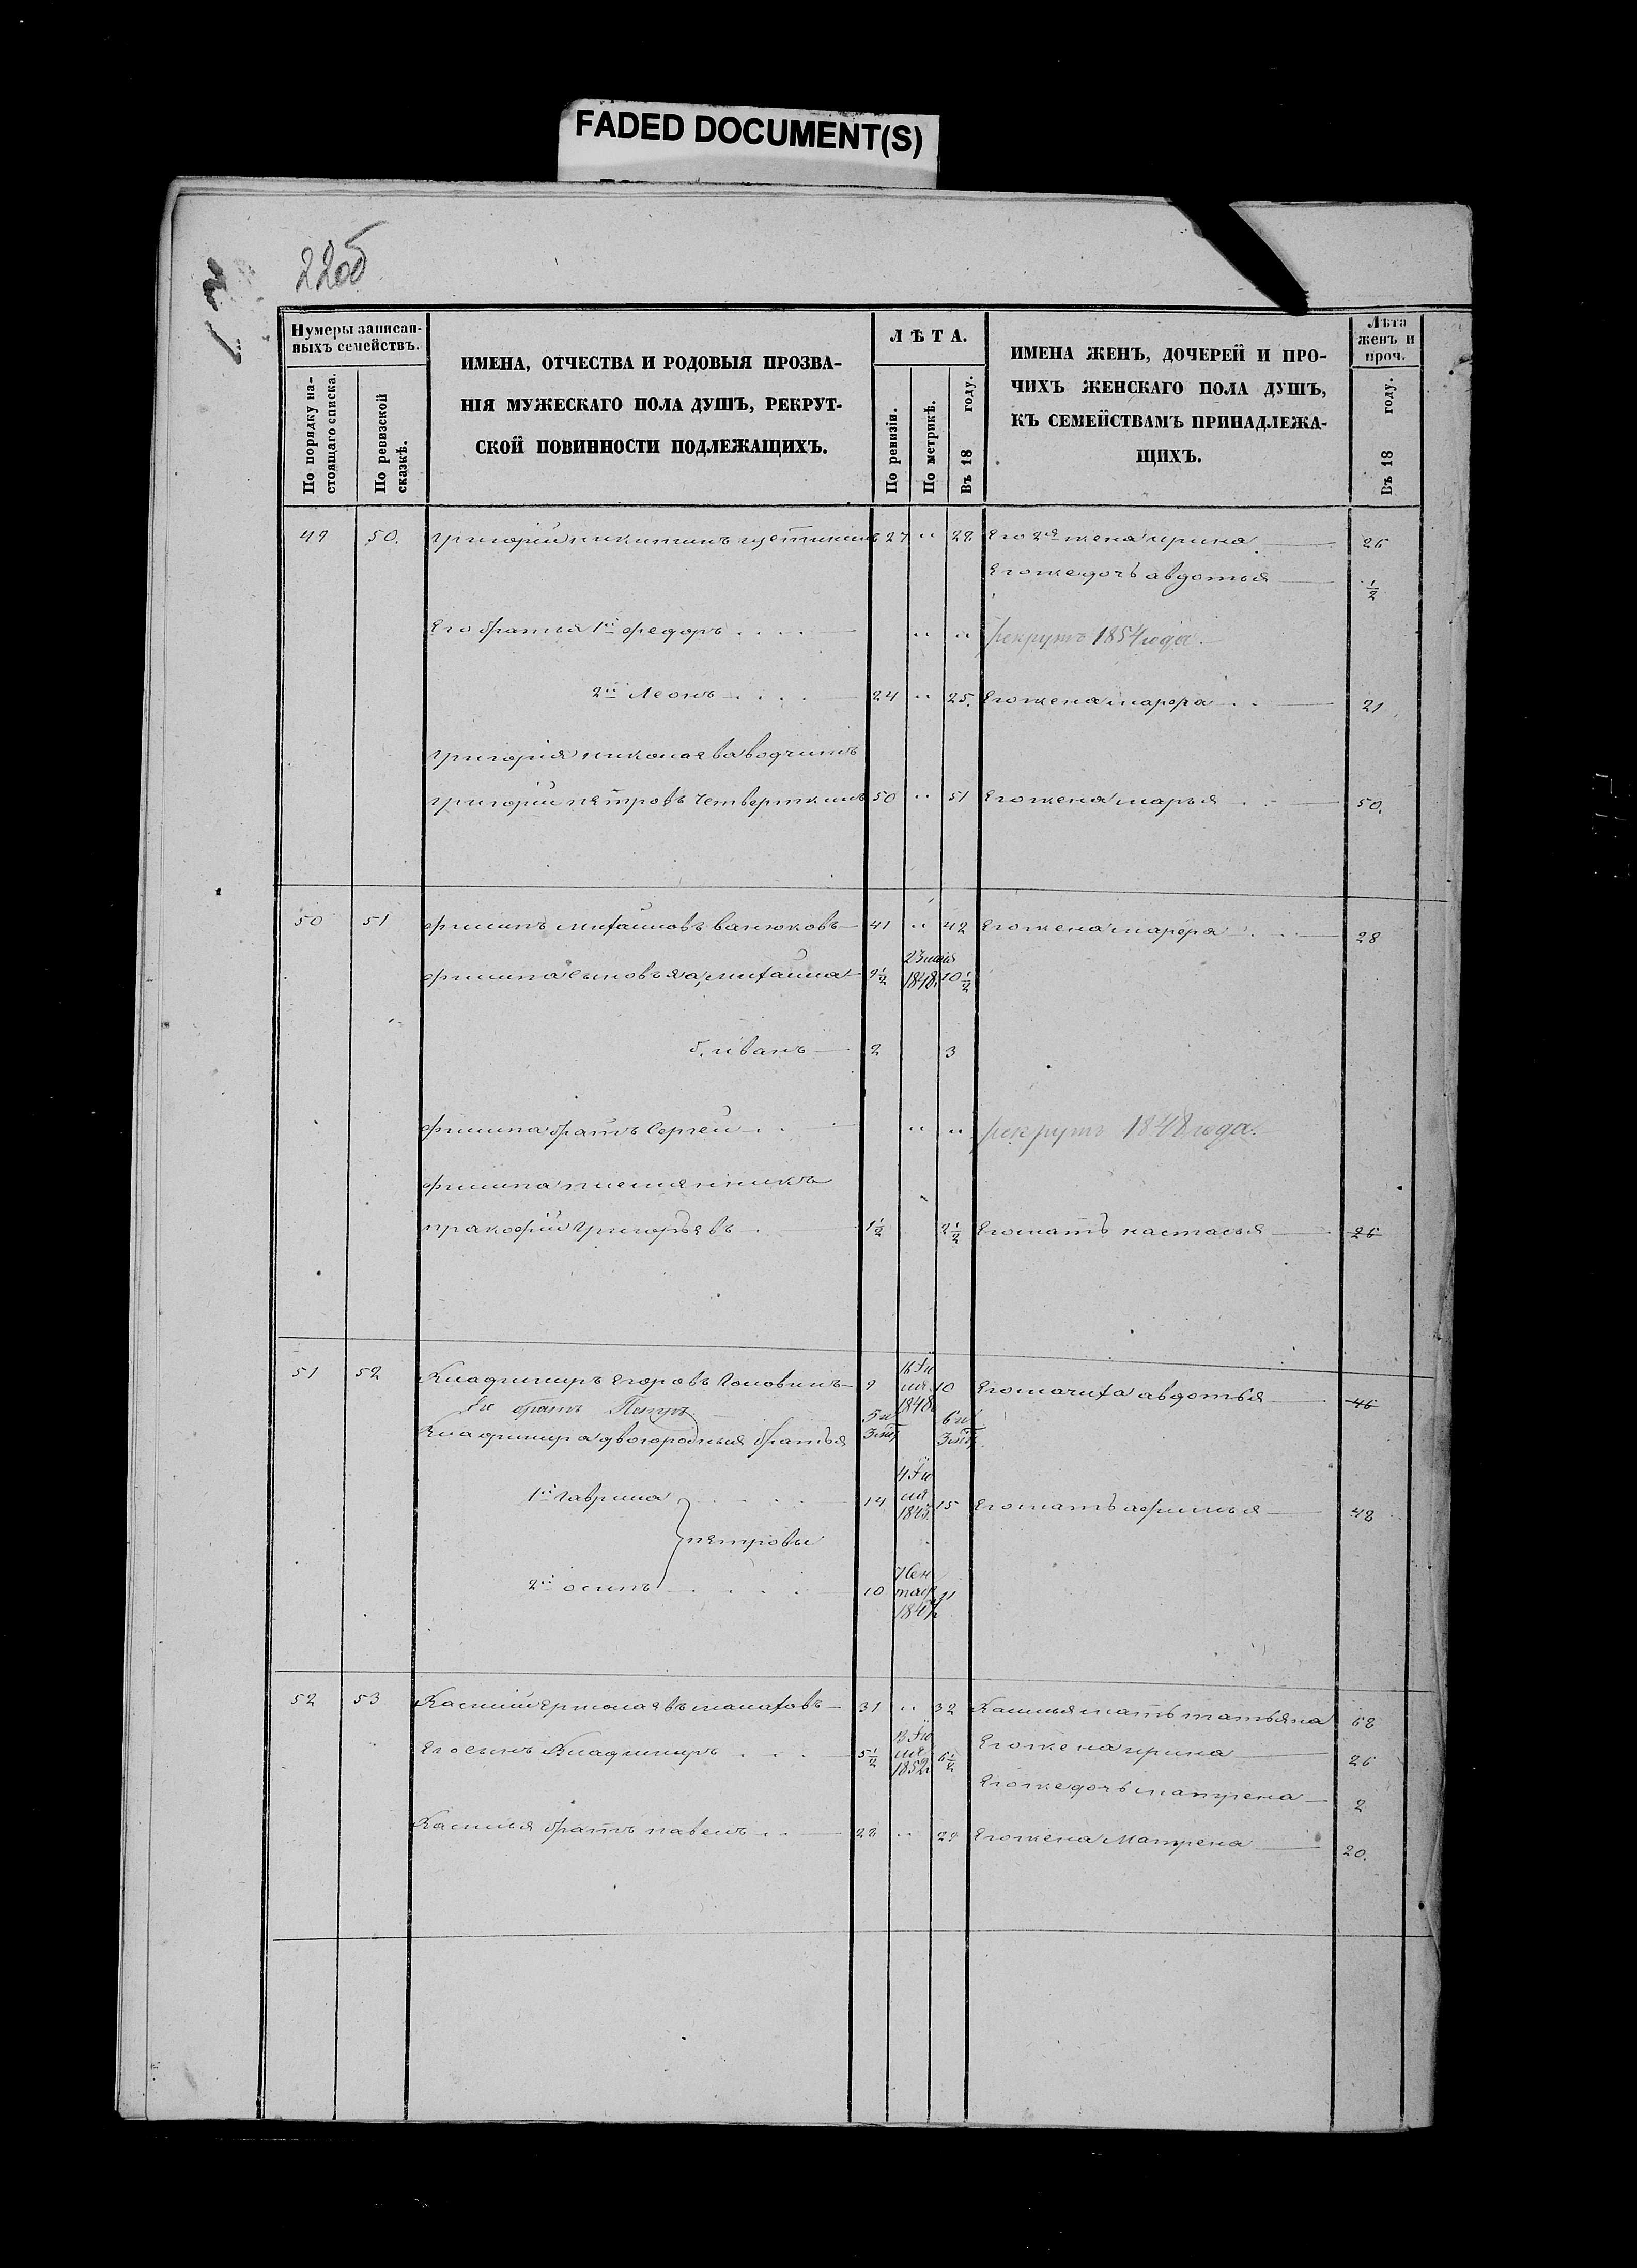 FADED DOCUMENT(S)
22об
Нумеры записан-
ныхъ семействъ.
По порядку на-
стоящаго списка.
По ревизской
сказкѣ.
ИМЕНА, ОТЧЕСТВА И РОДОВЫЯ ПРОЗВА-
НІЯ МУЖЕСКАГО ПОЛА ДУШЪ, РЕКРУТ-
СКОЙ ПОВИННОСТИ ПОДЛЕЖАЩИХЪ.
ЛѢТА.
По ревизіи.
По метрикѣ.
Въ 18 году.
ИМЕНА ЖЕНЪ, ДОЧЕРЕЙ И ПРО-
ЧИХЪ ЖЕНСКАГО ПОЛА ДУШЪ,
КЪ СЕМЕЙСТВАМЪ ПРИНАДЛЕЖА-
ЩИХЪ.
Лѣта
женъ и
проч.
Въ 18 году.
49 50. григорій никитинъ 27 " 28 Его 2я жена ирина 26
Его же дочь авдотья 1/2
Его братья 1й федоръ " " рекрутъ 1854 года.
2й Леонъ 24 " 25. Его жена марфа 21
григорія николаева вотчимъ
григорій петровъ Четверткинъ 50 " 51 Его жена марья 50.
50 51 филипъ михайловъ ванюковъ 41 " 42 Его жена марфа 28
филипа сыновья а, михайла 9 1/2 23 1848. 10 1/2
б, иванъ 2 3
филипа братъ Сергей " " рекрутъ 1848 года.
филипа племянникъ
пракофій григорьевъ 1 1/2 2 1/2 Его мать настасья 26
51 52 Владимиръ егоровъ Головинъ 9 16 Iю
ля 1848. 10 Его мачиха авдотья 46
Ег братъ Петръ 5 и 3 мѣс 6 и 3 мѣс
Владимира двоюродныя братья
1й гаврила 14 4 Iю
ля 184 15 Его мать афимья 48
петровы
2й осипъ 10 7 Сен
тяб 1847 11
52 53 Касьян ермолаевъ малаховъ 31 " 32 Касьяна мать татьяна 68
Его сынъ Владимиръ 5 1/2 13 Iю
ля 1852. 6 1/2 Его жена ирина 26
Его же дочь матрена 2
братъ павелъ 28 " 29 Его жена Матрена 20.